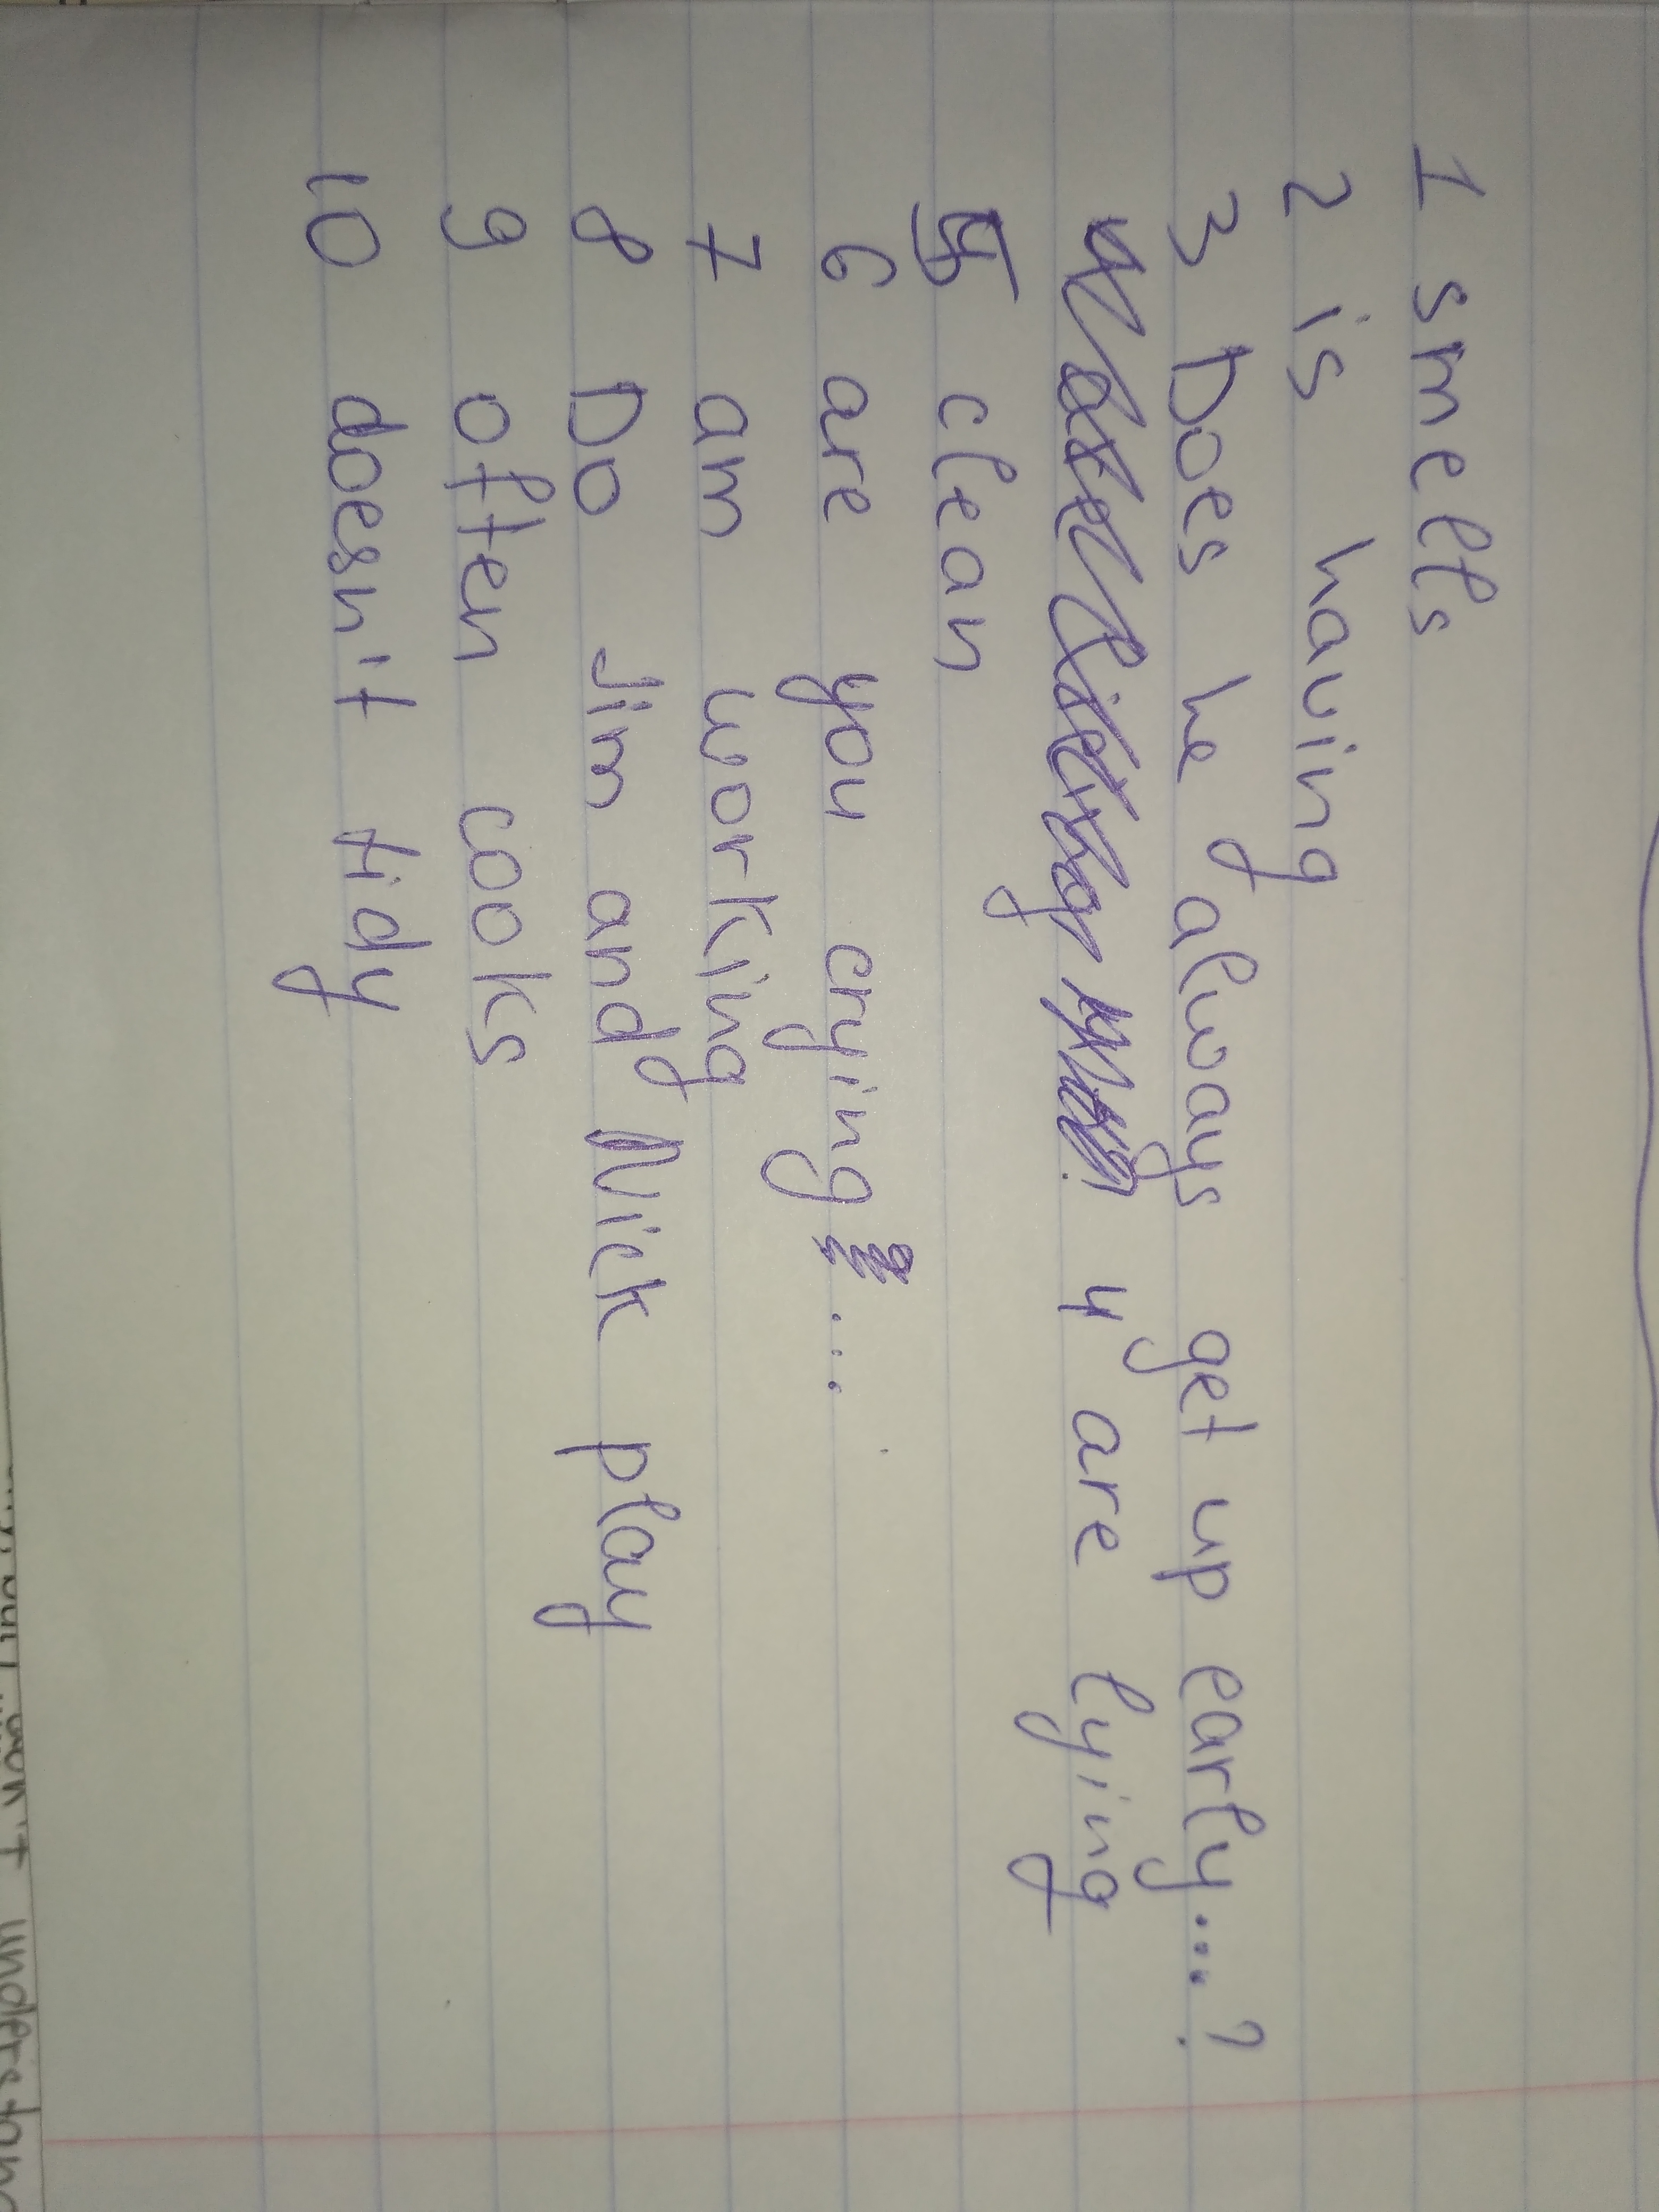 1 smells
2 is having
3 Does he always get up early...?
4 are lying
5 clean
6 are you crying ...
7 am working
8 Do Jim and Nick play
9 often cooks
10 doesn't tidy
don't understand